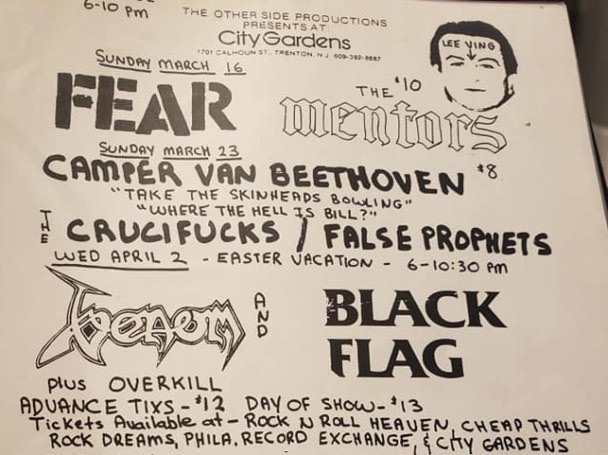 6-10 pm
THE OTHER SIDE PRODUCTIONS
PRESENTS AT
City Gardens
1701 CALHOUN ST., TRENTON, NJ 609-392-8887
LEE VING
SUNDAY MARCH 16
FEAR
THE $10
mentors
SUNDAY MARCH 23
CAMPER VAN BEETHOVEN $8
"TAKE THE SKINHEADS BOWLING"
"WHERE THE HELL IS BILL?"
THE CRUCIFUCKS / FALSE PROPHETS
WED APRIL 2 - EASTER VACATION - 6-10:30 pm
Venom
AND
BLACK
FLAG
plus OVERKILL
ADVANCE TIXS - $12 DAY OF SHOW - $13
Tickets Available at - ROCK N ROLL HEAVEN, CHEAP THRILLS
ROCK DREAMS, PHILA. RECORD EXCHANGE, & CITY GARDENS